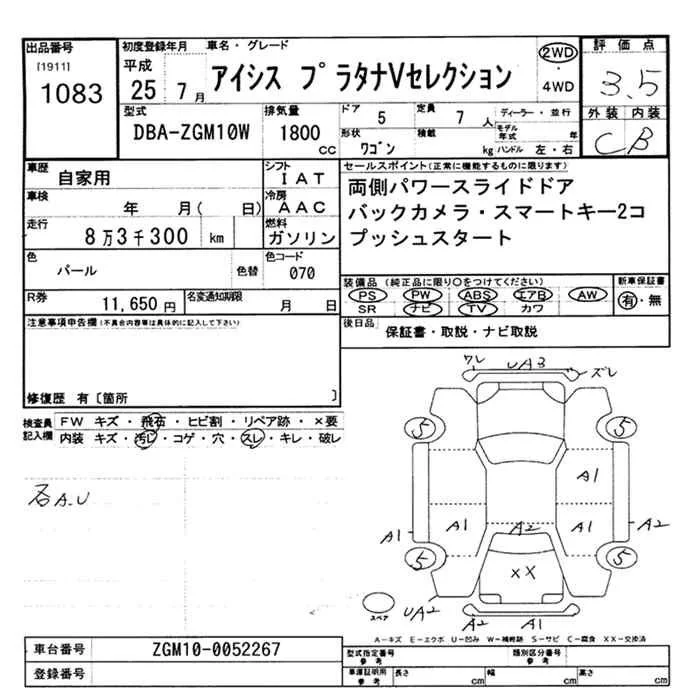 出品番号
[1911]
1083
初度登録年月
車名・グレード
平成
25 7月
アイシス プラタナVセレクション
2WD
・
4WD
評価点
3.5
外装 内装
C B
型式
DBA-ZGM10W
排気量
1800 cc
ドア 5
定員 7人
形状 ワゴン
積載 kg
ディーラー・並行
モデル年式 年
ハンドル 左・右
車歴
自家用
シフト
IAT
車検
年 月( 日)
冷房
AAC
走行
8万3千300 km
燃料
ガソリン
色
パール
色替
色コード
070
R券
11,650円
名変通知期限
月 日
セールスポイント(正常に機能するものに限ります)
両側パワースライドドア
バックカメラ・スマートキー2コ
プッシュスタート
装備品 (純正品に限り○をつけてください)
PS PW ABS エアB AW
SR ナビ TV カワ
新車保証書
有・無
後日品
保証書・取説・ナビ取説
注意事項申告欄(不具合内容等は具体的に記入して下さい)
修復歴 有〔箇所 〕
検査員記入欄
FW キズ・飛石・ヒビ割・リペア跡・×要
内装 キズ・汚レ・コゲ・穴・スレ・キレ・破レ
各A.U
ワレ UA3 ズレ
5 5
A1
A1 A1 A2 A1 A2
5 5
XX
スペア
UA2
A2 A1
A-キズ E-エクボ U-凹み W-補修跡 S-サビ C-腐食 XX-交換済
車台番号
ZGM10-0052267
登録番号
型式指定番号 参考
類別区分番号 参考
車庫証明用 参考
長さ cm
幅 cm
高さ cm